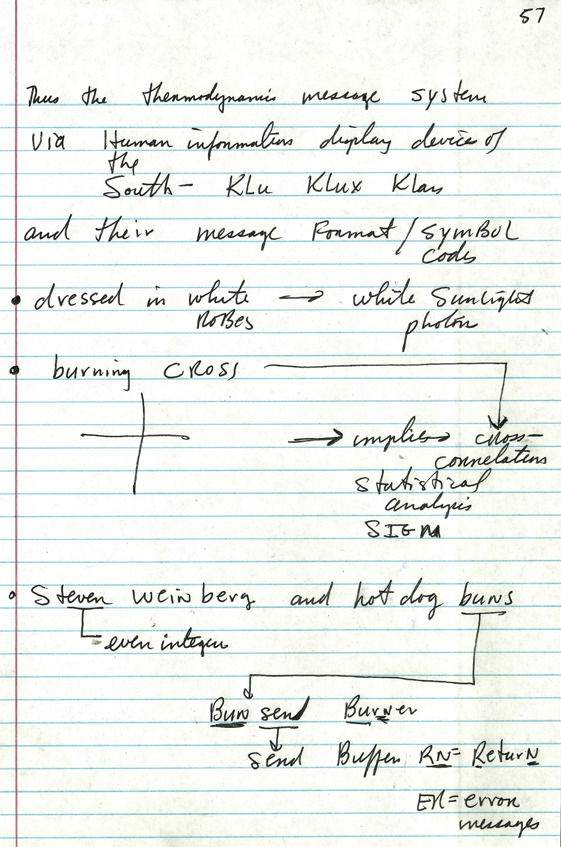 57
Thus the thermodynamic message system
via Human information display device of
the
South- KLu KLux Klan
and their message Format / SYMBOL
codes
• dressed in white → white Sunlight
ROBES photon
• burning CROSS
→ implies cross-
correlations
statistical
analysis
SIGN
• Steven Weinberg and hot dog buns
even integer
Bun send Burner
send Buffer RN= ReturN
ER= error
messages